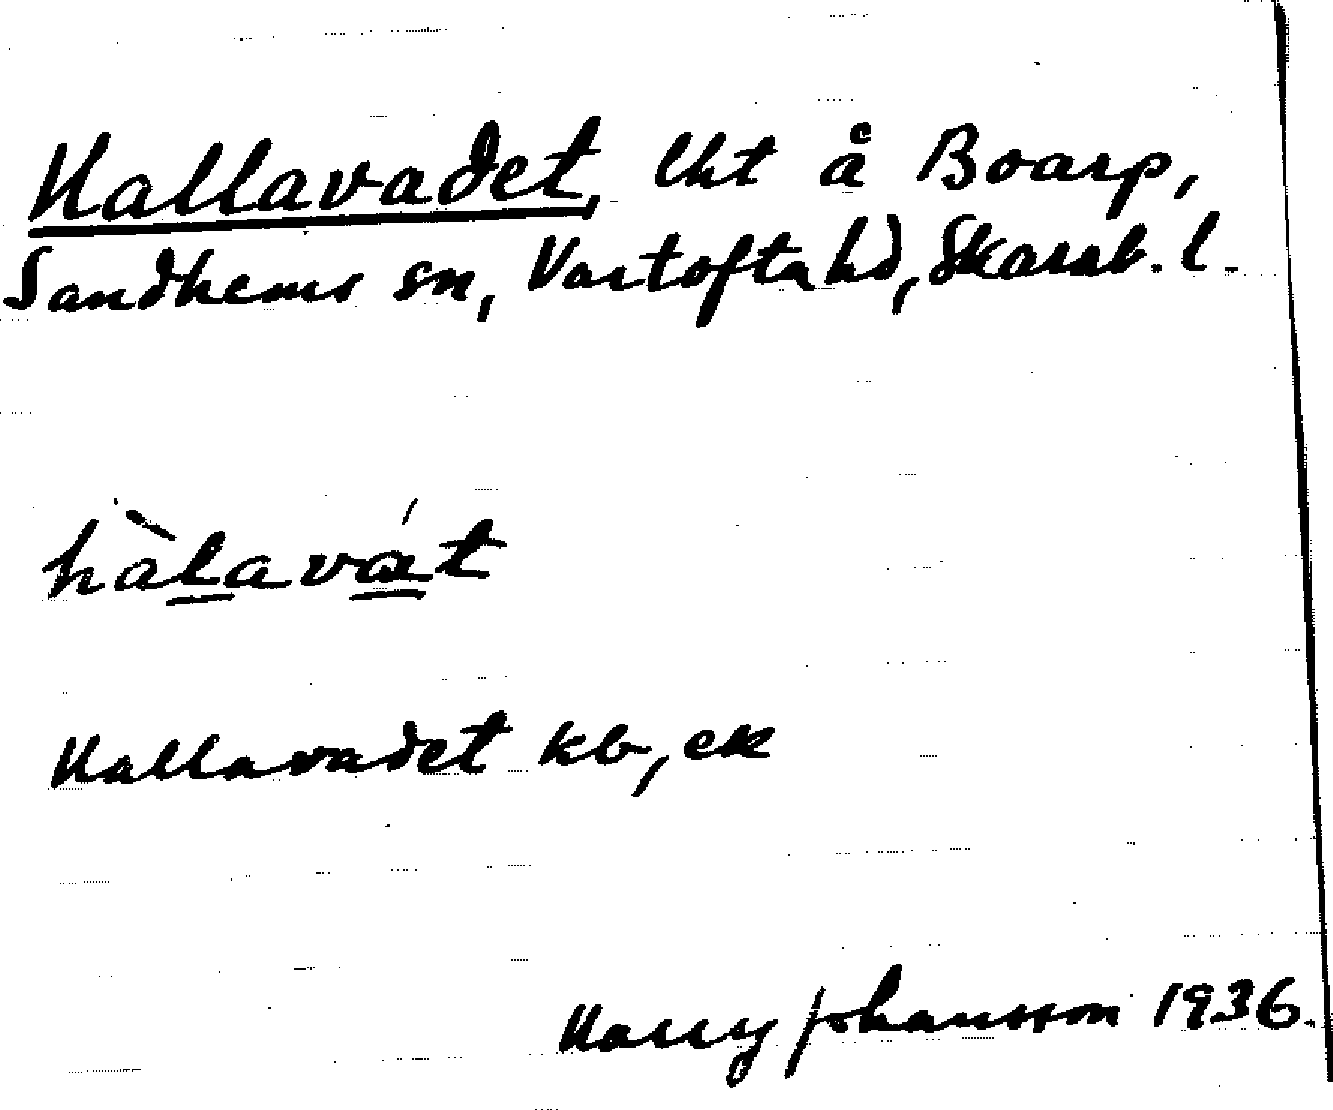 Hallavadet, lht å Boarp,
Sandhems sn, Vartofta hd, Skarab. l.
hàlavát
Hallavadet kb, ek
Harry Johansson 1936.